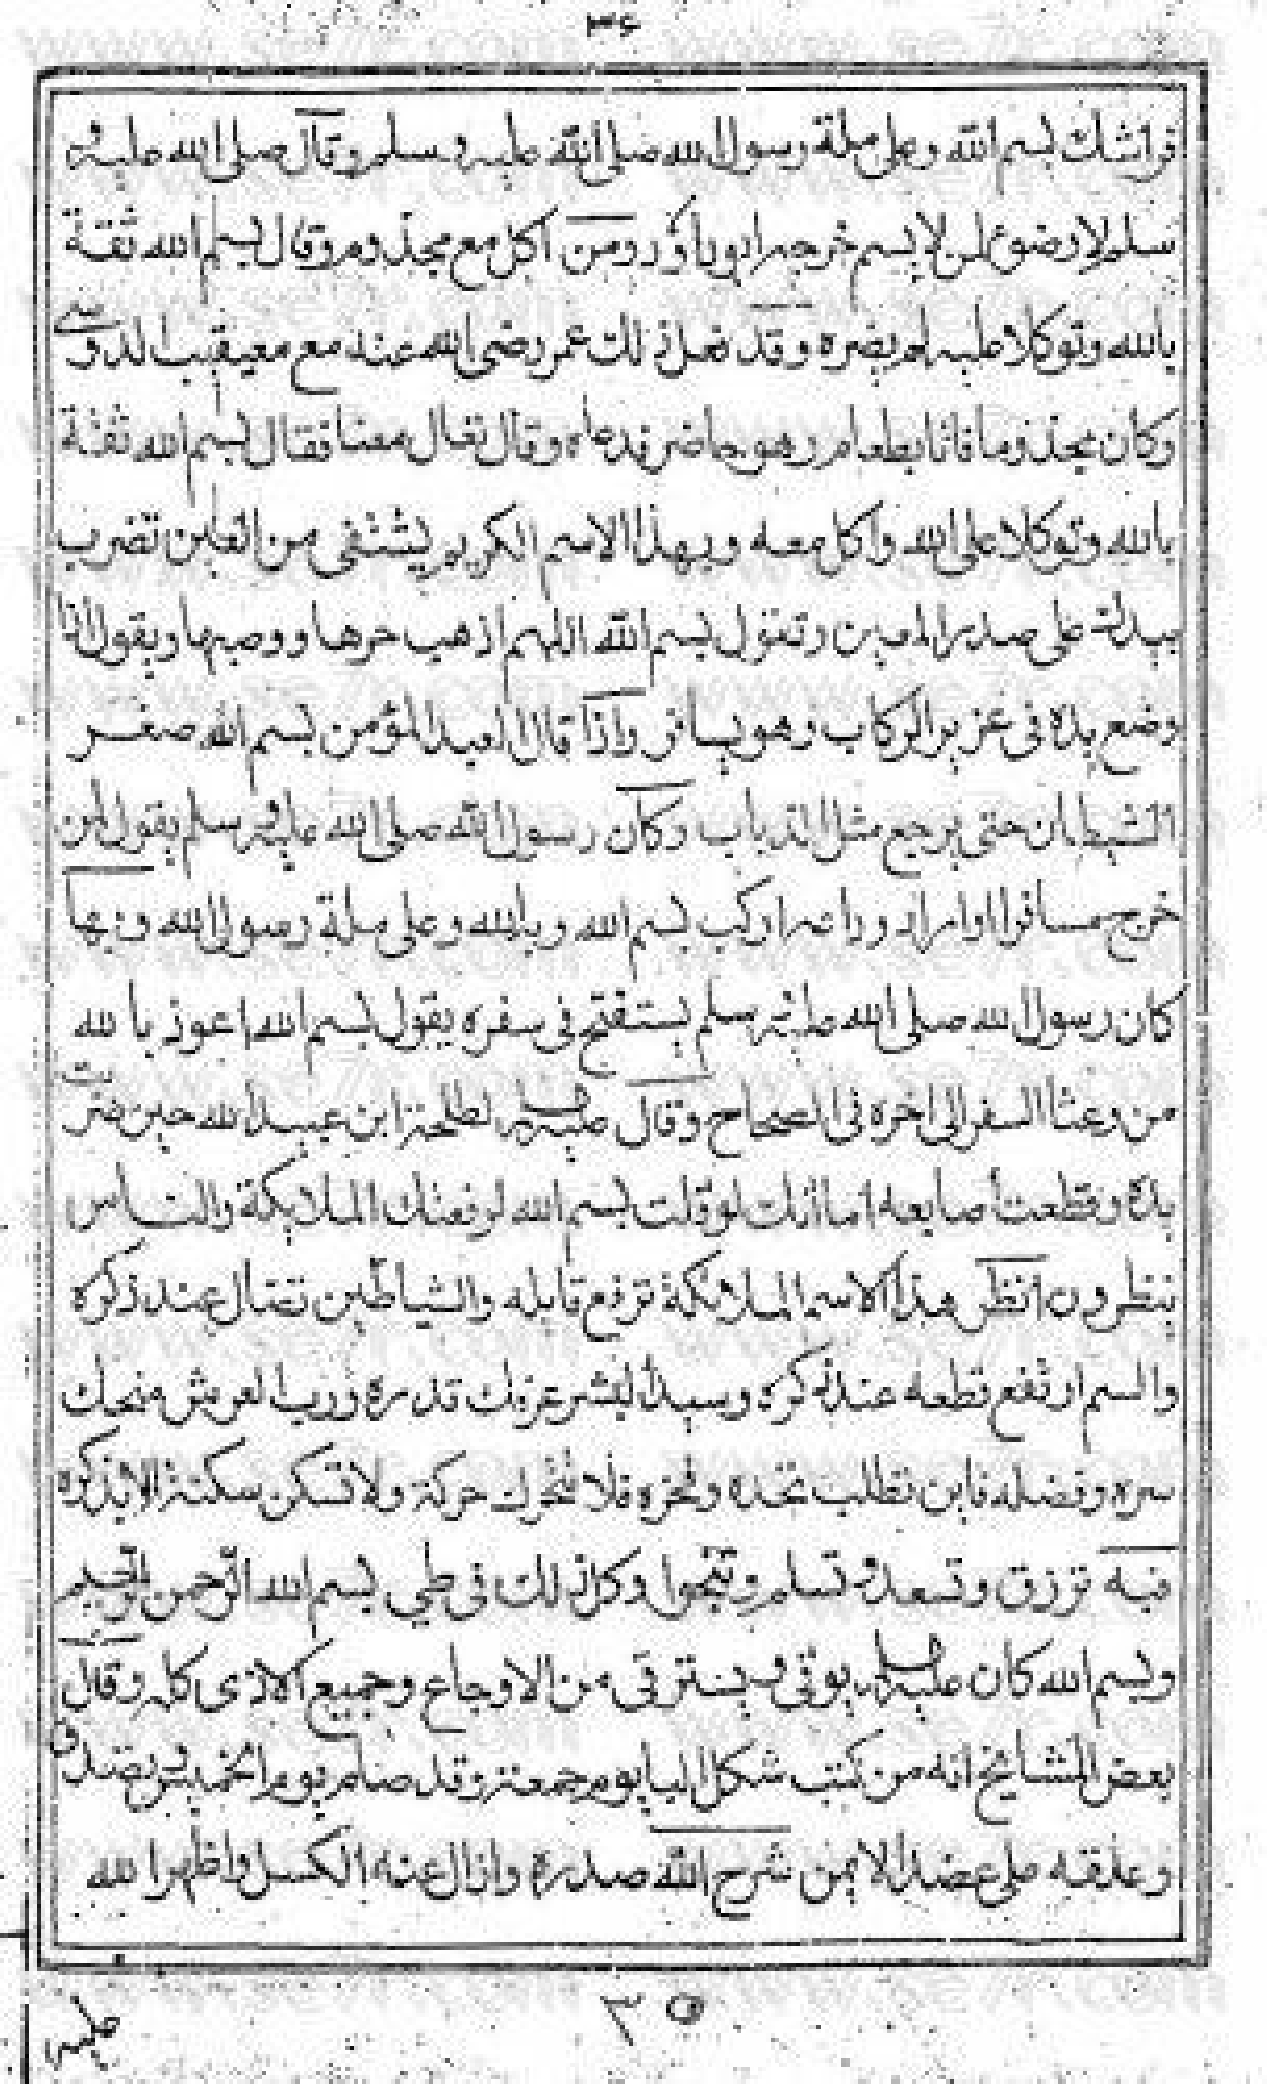 ٣٤
فراشك بسم الله وعلى ملة رسول الله صلى الله عليه وسلم وقال صلى الله عليه و
سلم لا وضوء لمن لا يسم خرجه ابوداؤد ومن اكل مع مجذوم وقال بسم الله ثقة
بالله وتوكلا عليه لم يضره وقد فعل ذلك عمر رضى الله عنه مع معيقيب الدوسى
وكان مجذوما فاتا بطعام وهو حاضر فدعاه وقال تعال معنا فقال بسم الله ثقة
بالله وتوكلا على الله واكل معه وبهذا الاسم الكريم يشتفى من العين تضرب
بيدك على صدر المعين وتقول بسم الله اللهم اذهب حرها ووصبها ويقول اذا
وضع يده فى غرز الركاب وهو يسافر واذا قال العبد المؤمن بسم الله صغر
الشيطان حتى يرجع مثل الذباب وكان رسول الله صلى الله عليه وسلم يقول لمن
خرج مسافرا او اراد وداعه اركب بسم الله وبالله وعلى ملة رسول الله وبها
كان رسول الله صلى الله عليه وسلم يستفتح فى سفره يقول بسم الله اعوذ با لله
من وعثا السفر الى اخره فى الصحاح وقال لطلحة ابن عبيد الله حين ضربت
يده وقطعت اصابعه اما انك لو قلت بسم الله لرفعتك الملايكة والناس
ينظرون انظر هذا الاسم الملائكة ترفع قايله والشياطين تضال عند ذكره
والسم ارتفع قطعه عند ذكره وسيد البشر عرفك قدره ورب العرش منحك
سره وفضله فاين تطلب تجده وفخره فلا تتحرك حركة ولا تسكن سكنة الا بذكره
فبه ترزق وتسعد وتسلم وتنجوا وكل ذلك فى طي بسم الله الرحمن الرحيم
وبسم الله كان يوقى ويسترقى من الاوجاع وجميع الاذى كله وقال
بعض المشايخ انه من كتب شكل البا يوم جمعة وقد صام يوم الخميس بصدق
وعلقه على عضد الايمن شرح الله صدره وازال عنه الكسل واظهر الله
٣٥
عليه